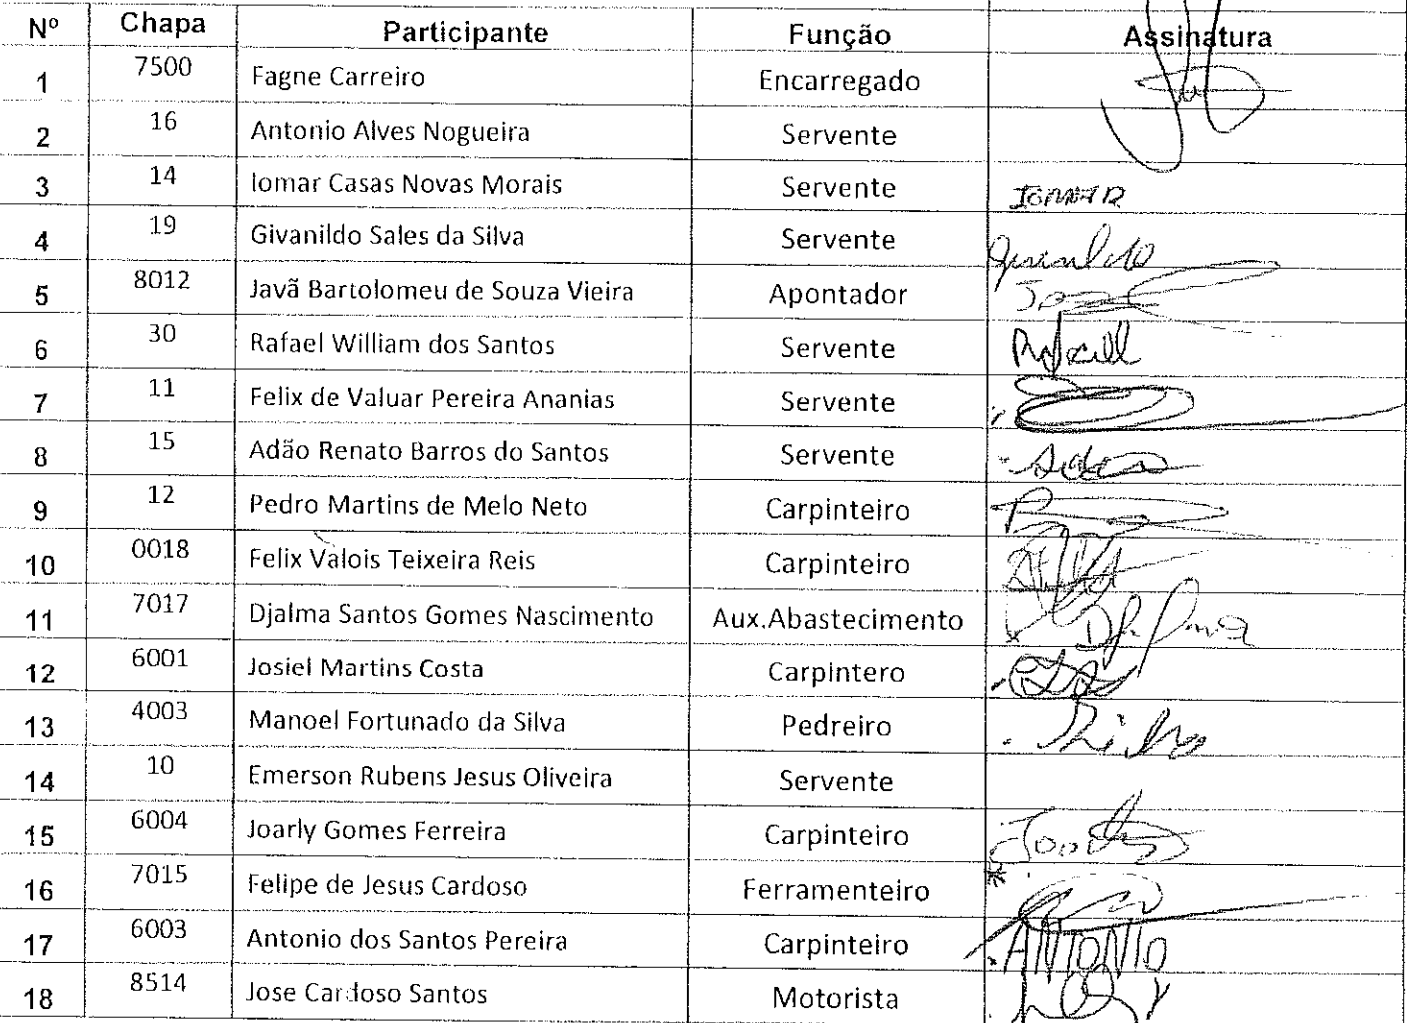 Nº Chapa Participante Função Assinatura
1 7500 Fagne Carreiro Encarregado
2 16 Antonio Alves Nogueira Servente
3 14 Iomar Casas Novas Morais Servente IOMAR
4 19 Givanildo Sales da Silva Servente
5 8012 Javã Bartolomeu de Souza Vieira Apontador
6 30 Rafael William dos Santos Servente
7 11 Felix de Valuar Pereira Ananias Servente
8 15 Adão Renato Barros do Santos Servente
9 12 Pedro Martins de Melo Neto Carpinteiro
10 0018 Felix Valois Teixeira Reis Carpinteiro
11 7017 Djalma Santos Gomes Nascimento Aux.Abastecimento
12 6001 Josiel Martins Costa Carpintero
13 4003 Manoel Fortunado da Silva Pedreiro
14 10 Emerson Rubens Jesus Oliveira Servente
15 6004 Joarly Gomes Ferreira Carpinteiro
16 7015 Felipe de Jesus Cardoso Ferramenteiro
17 6003 Antonio dos Santos Pereira Carpinteiro ANTONIO
18 8514 Jose Cardoso Santos Motorista